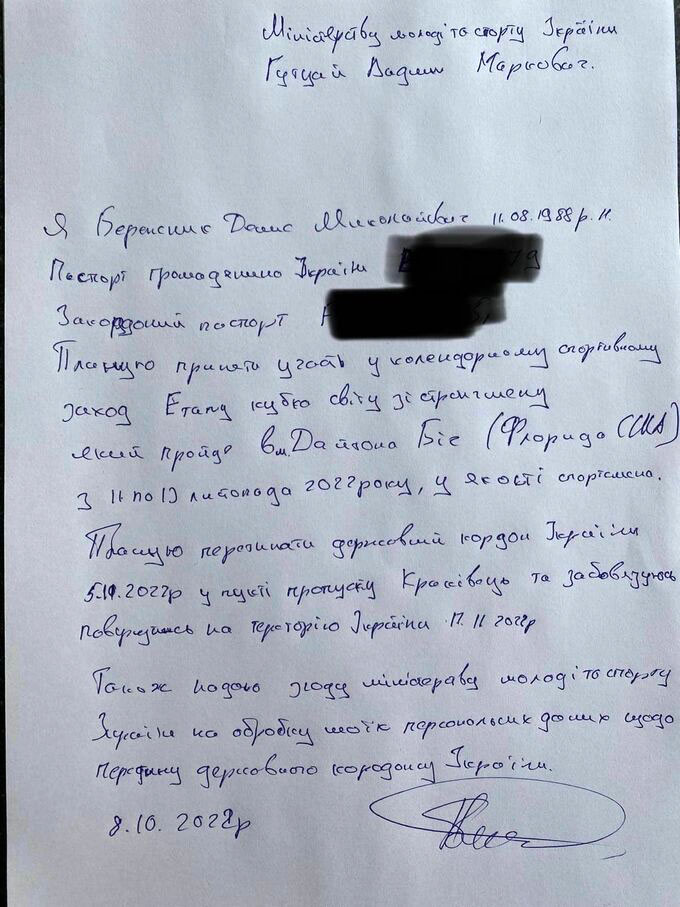 Міністерству молоді та спорту України
Гутцайт Вадим Маркович.
Я Бережник Данис Миколайович 11.08.1988 р.н.
Паспорт громадянина України
Закордоний паспорт
Планую приняти участь у календарному спортивному
заход Етапу кубка світу зі стронгмену
який пройде в м. Дайтона Біг (Флорида США)
з 11 по 13 листопада 2022 року, у якості спортсмена.
Планую перетинати державний кордон України
5.11.2022р у пункті пропуску Краківець та забовязуюсь
повернутись на територію України 17.11 2022р
Також надаю згоду міністерству молоді та спорту
України на обробку моїх персональних даних щодо
перетину державного корордону України.
8.10. 2022р